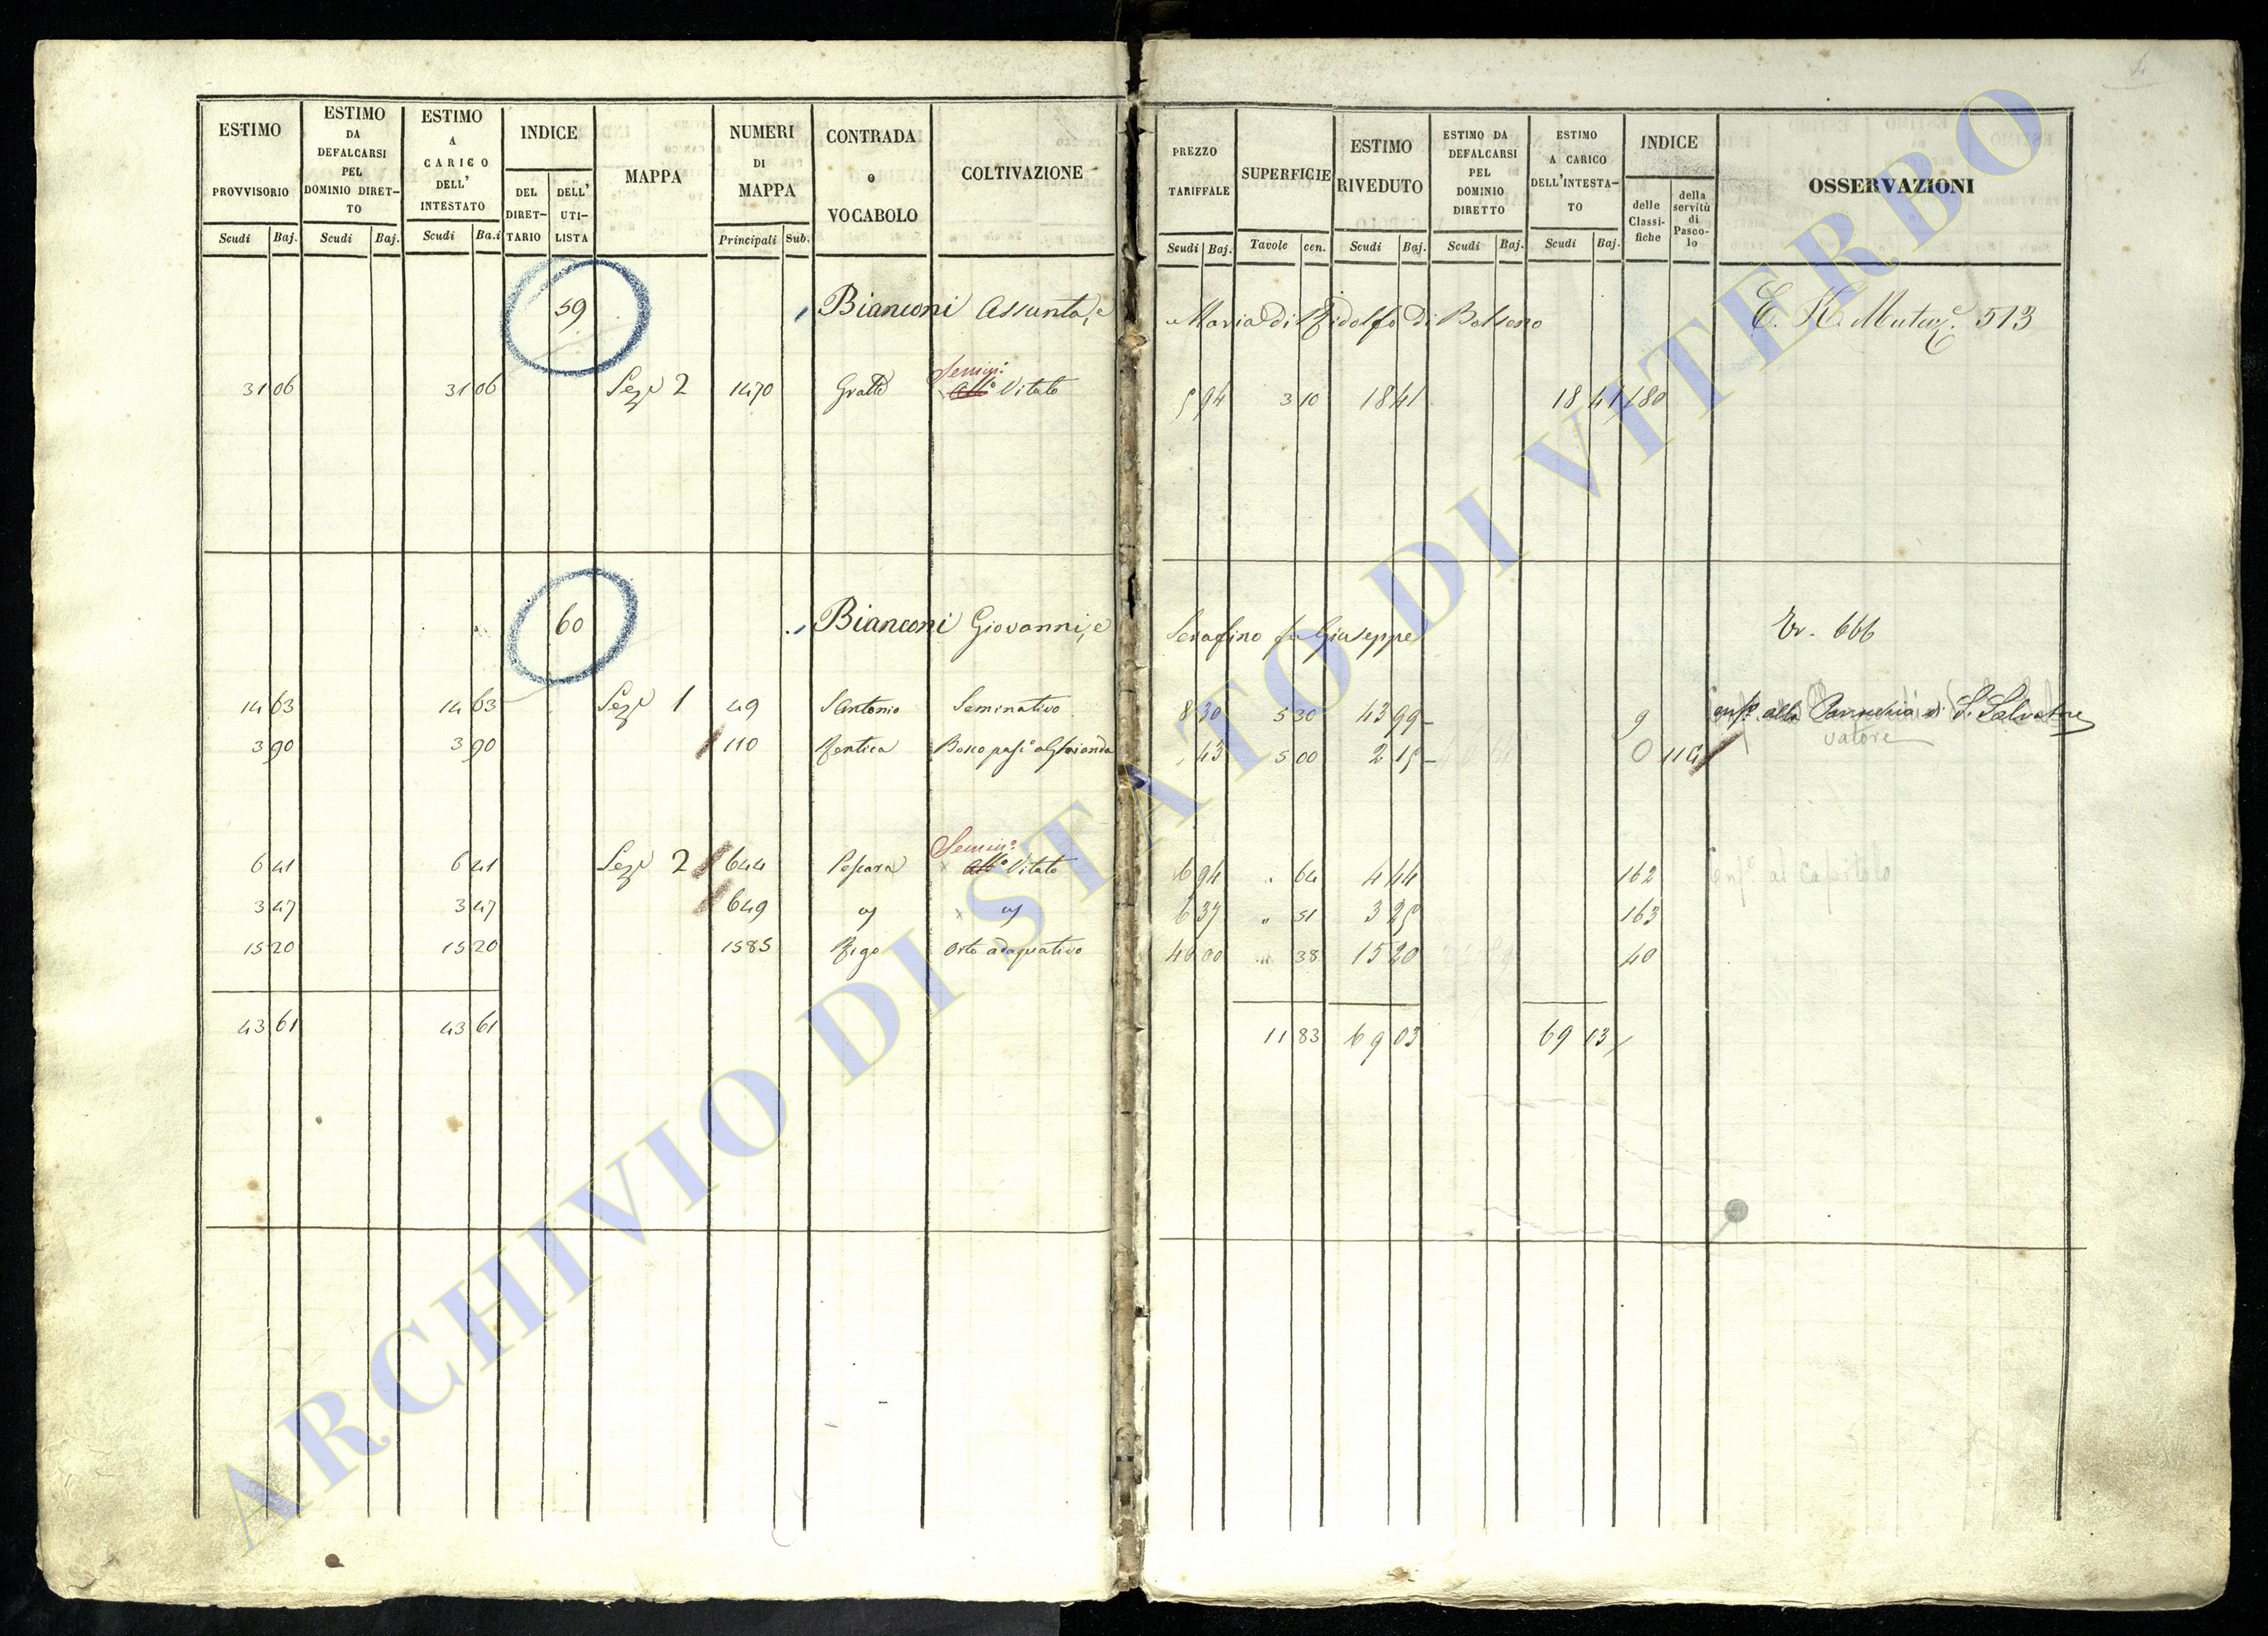 ESTIMO PROVVISORIO Scudi Baj.
ESTIMO DA DEFALCARSI PEL DOMINIO DIRET-TO Scudi Baj.
ESTIMO A CARICO DELL' INTESTATO Scudi Ba.i
INDICE DEL DIRET-TARIO DELL' UTI-LISTA
MAPPA
NUMERI DI MAPPA Principali Sub.
CONTRADA o VOCABOLO
COLTIVAZIONE
PREZZO TARIFFALE Scudi Baj.
SUPERFICIE Tavole cen.
ESTIMO RIVEDUTO Scudi Baj.
ESTIMO DA DEFALCARSI PEL DOMINIO DIRETTO Scudi Baj.
ESTIMO A CARICO DELL'INTESTA-TO Scudi Baj.
INDICE delle Classi-fiche della servitù di Pasco-lo
OSSERVAZIONI
59 Bianconi Assunta, e Maria di Ridolfo di Bolseno E. K. Mutaz.e 513
Semin.o
31 06 31 06 Sez.e 2 1470 Vitato 5 94 3 10 18 41 18 41 180
60 Bianconi Giovanni, e Serafino fu Giuseppe Vr. 666
14 63 14 63 Sez.e 1 49 S Antonio Seminativo 8 30 5 30 43 99 9 Enf.o alla Parrochia di S. Salvatore
vatore
3 90 3 90 110 Bosco pas.o a Ghianda 43 5 00 2 15 0 114
Semin.o
6 41 6 41 Sez.e 2 644 Pescara Vitato 6 94 " 64 4 44 162 Enf.o al Capitolo
3 47 3 47 649 6 37 " 51 3 25 163
15 20 15 20 1585 Rigo Orto adaquativo 40 00 " 38 15 20 40
43 61 43 61 11 83 69 03 69 03
ARCHIVIO DI STATO DI VITERBO